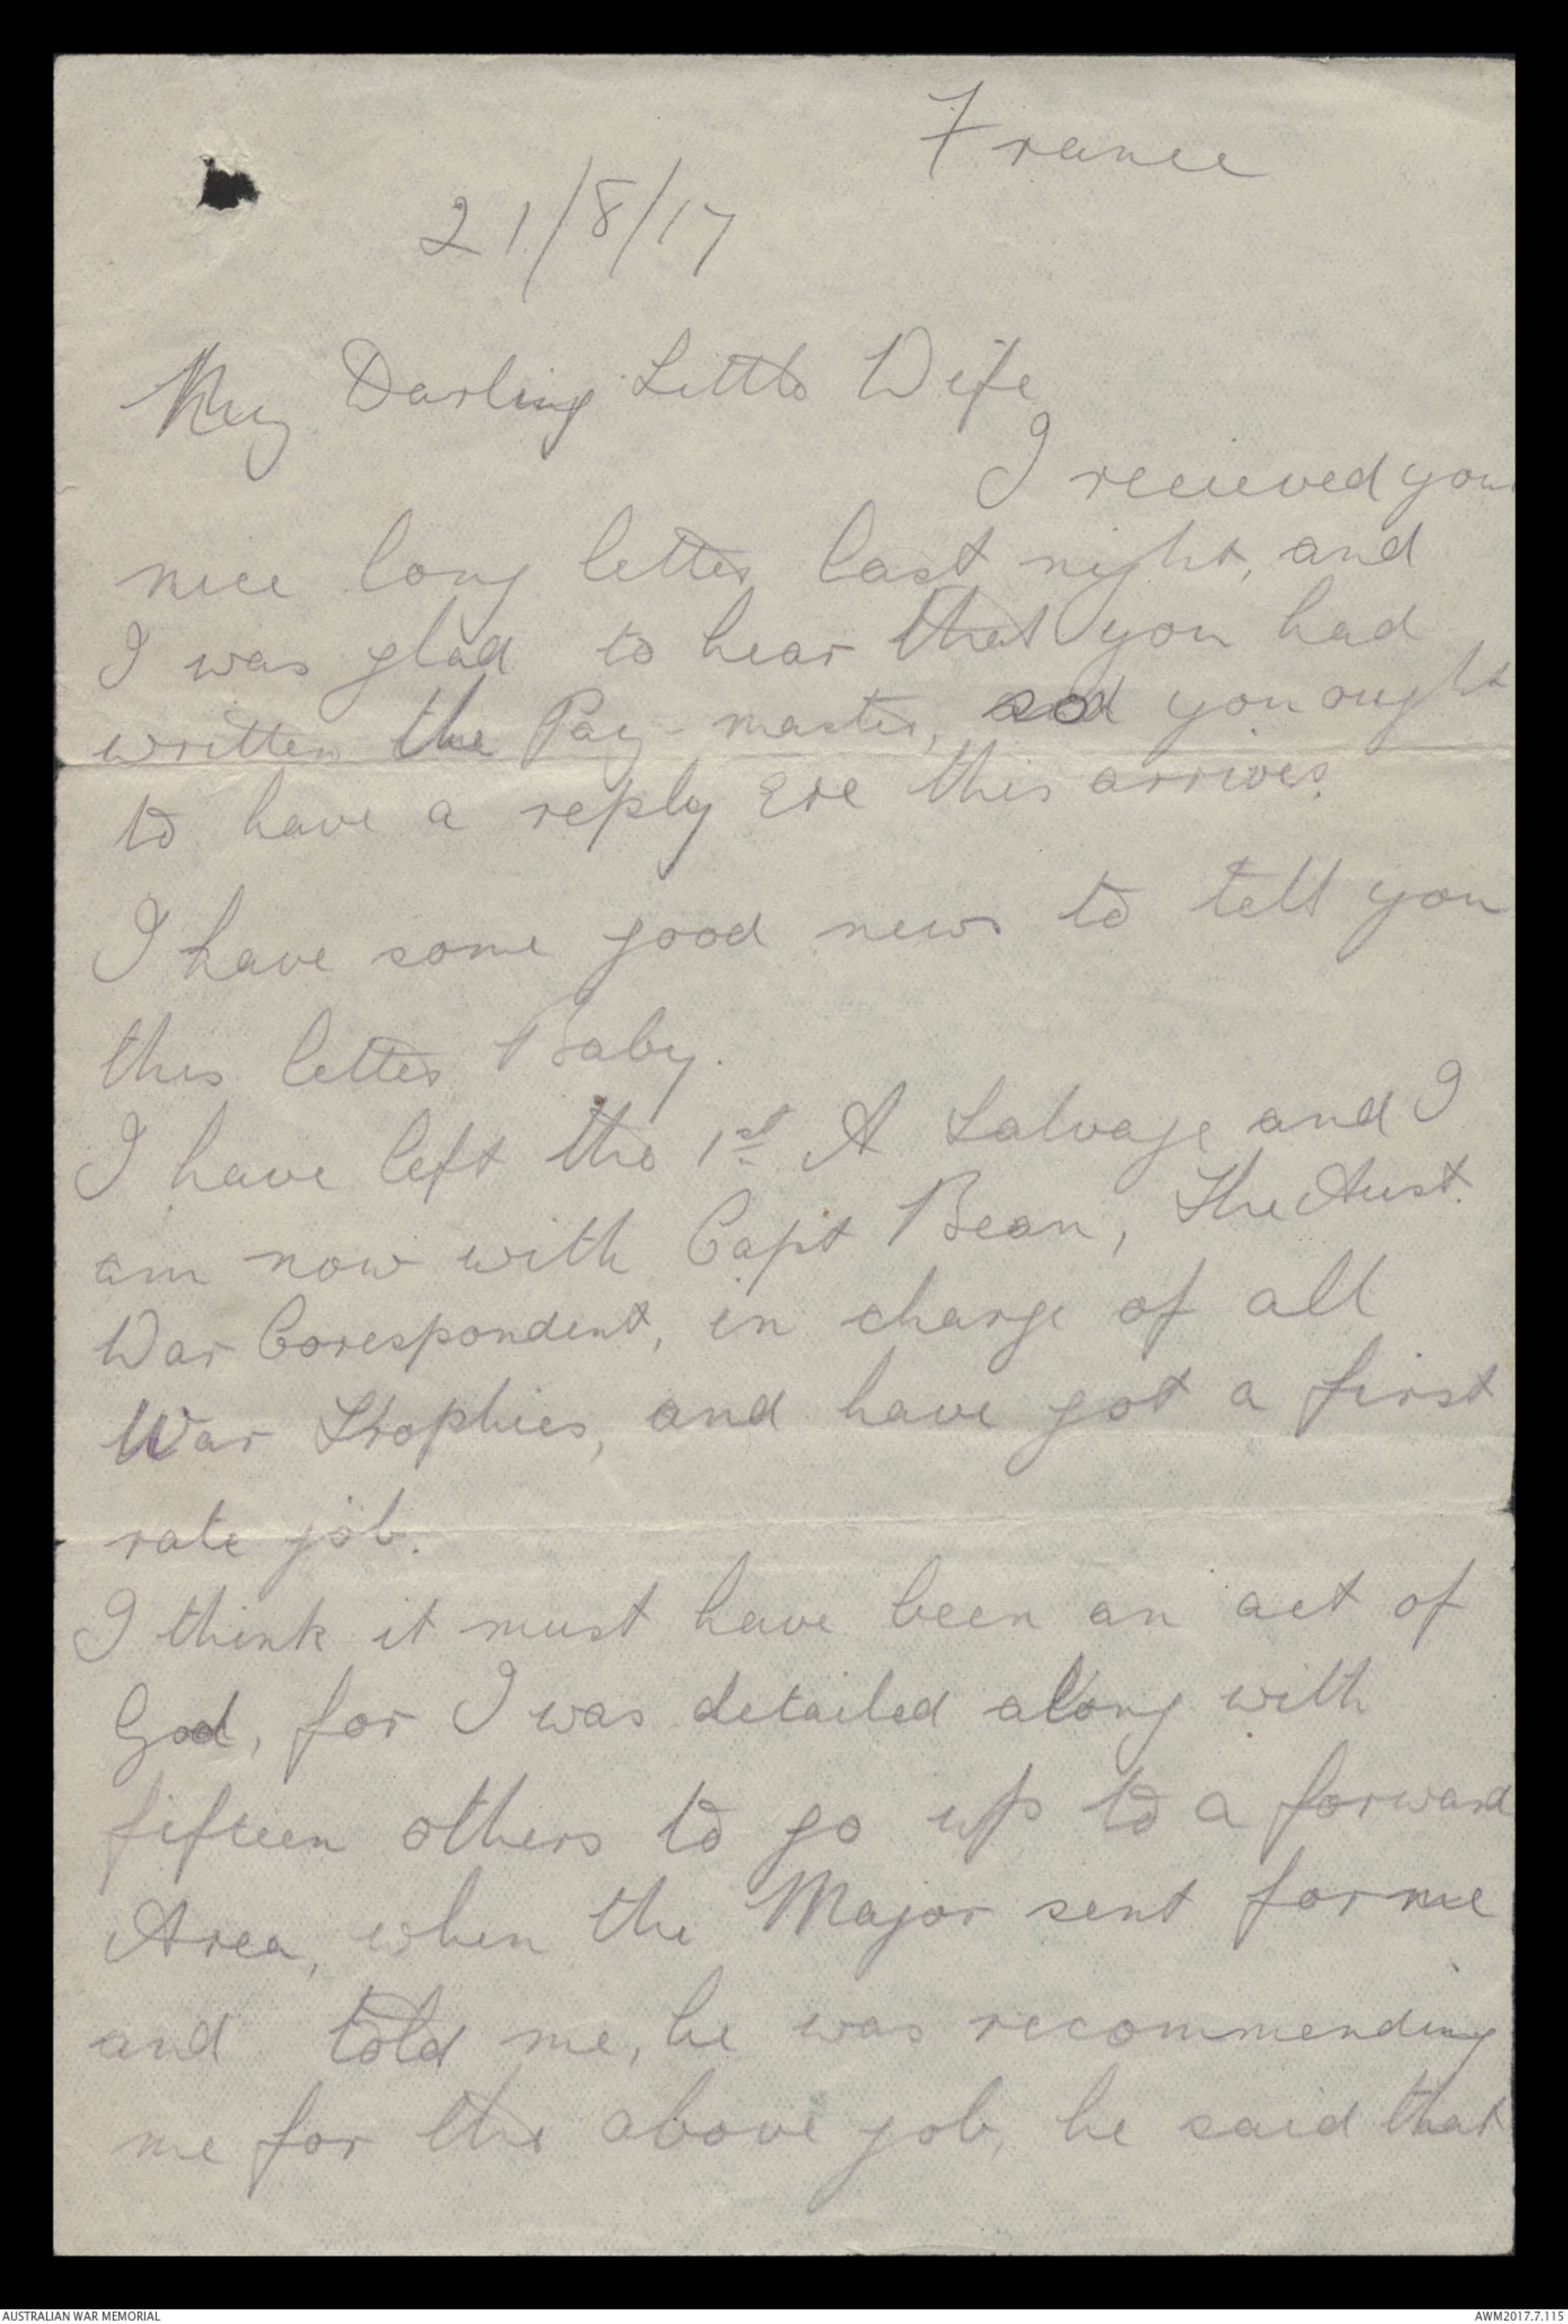 France
21/8/17
My Darling Little Wife
I recieved your
nice long letter last night, and
I was glad to hear that you had
written the Pay-master, and you ought
to have a reply ere this arrives.
I have some good news to tell you
this letter Baby.
I have left the 1st A Salvage and I
am now with Capt Bean, The Aust.
War Corespondent, in charge of all
War Trophies, and have got a first
rate job.
I think it must have been an act of
God, for I was detailed along with
fifteen others to go up to a forward
Area, when the Major sent for me
and told me, he was recommending
me for the above job, he said that
AUSTRALIAN WAR MEMORIAL
AWM2017.7.115